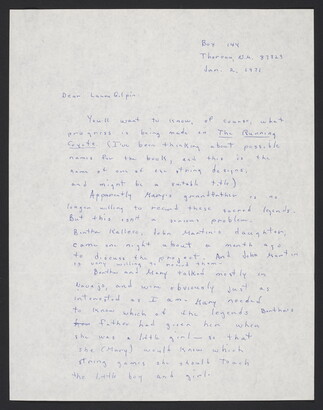 Box 144
Thoreau, N.M. 87323
Jan. 2, 1971
Dear Laura Gilpin
You'll want to know, of course, what
progress is being made on The Running
Coyote (I've been thinking about possible
names for the book, and this is the
name of one of our string designs,
and might be a suitable title)
Apparently Mary's grandfather is no
longer willing to record these sacred legends.
But this isn't a serious problem.
Bertha Kallese, John Martin's daughter,
came one night about a month ago
to discuss the project. And John Martin
is very willing to record them.
Bertha and Mary talked mostly in
Navajo, and were obviously just as
interested as I am. Mary needed
to know which of the legends Bertha's
father had given him when
she was a little girl — so that
she (Mary) would know which
string games she should teach
the little boy and girl.